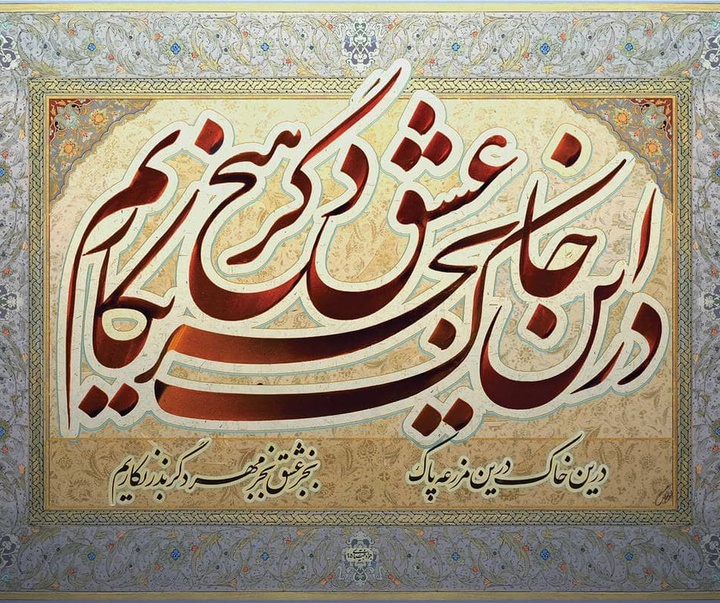 دراین خاک بجز عشق دگر هیچ نکاریم
درین خاک درین مزرعه پاک
بجز عشق بجز مهر دگر بذر نکاریم